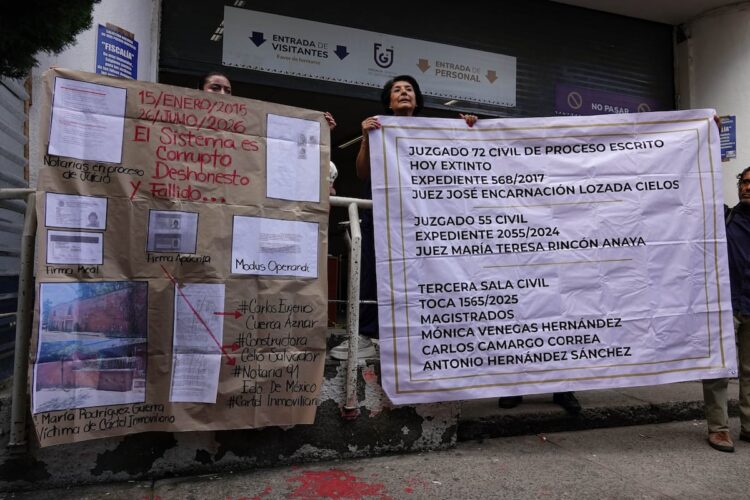 "FISCALÍA"
ENTRADA DE
VISITANTES
ENTRADA DE
PERSONAL
NO PASAR
15/ENERO/2015
26/JULIO/2026
El Sistema es
Corrupto
Deshonesto
y Fallido...
Notarías en proceso
de Juicio
Firma Real
Firma Apócrifa
Modus Operandi
#Carlos Eugenio
Cuenca Aznar
#Constructora
Celio Salvador
#Notaria 91
Edo. De México
#Cartel Inmoviliario
María Rodríguez Guerra
Victima de Cártel Inmoviliario
JUZGADO 72 CIVIL DE PROCESO ESCRITO
HOY EXTINTO
EXPEDIENTE 568/2017
JUEZ JOSÉ ENCARNACIÓN LOZADA CIELOS
JUZGADO 55 CIVIL
EXPEDIENTE 2055/2024
JUEZ MARÍA TERESA RINCÓN ANAYA
TERCERA SALA CIVIL
TOCA 1565/2025
MAGISTRADOS
MÓNICA VENEGAS HERNÁNDEZ
CARLOS CAMARGO CORREA
ANTONIO HERNÁNDEZ SÁNCHEZ